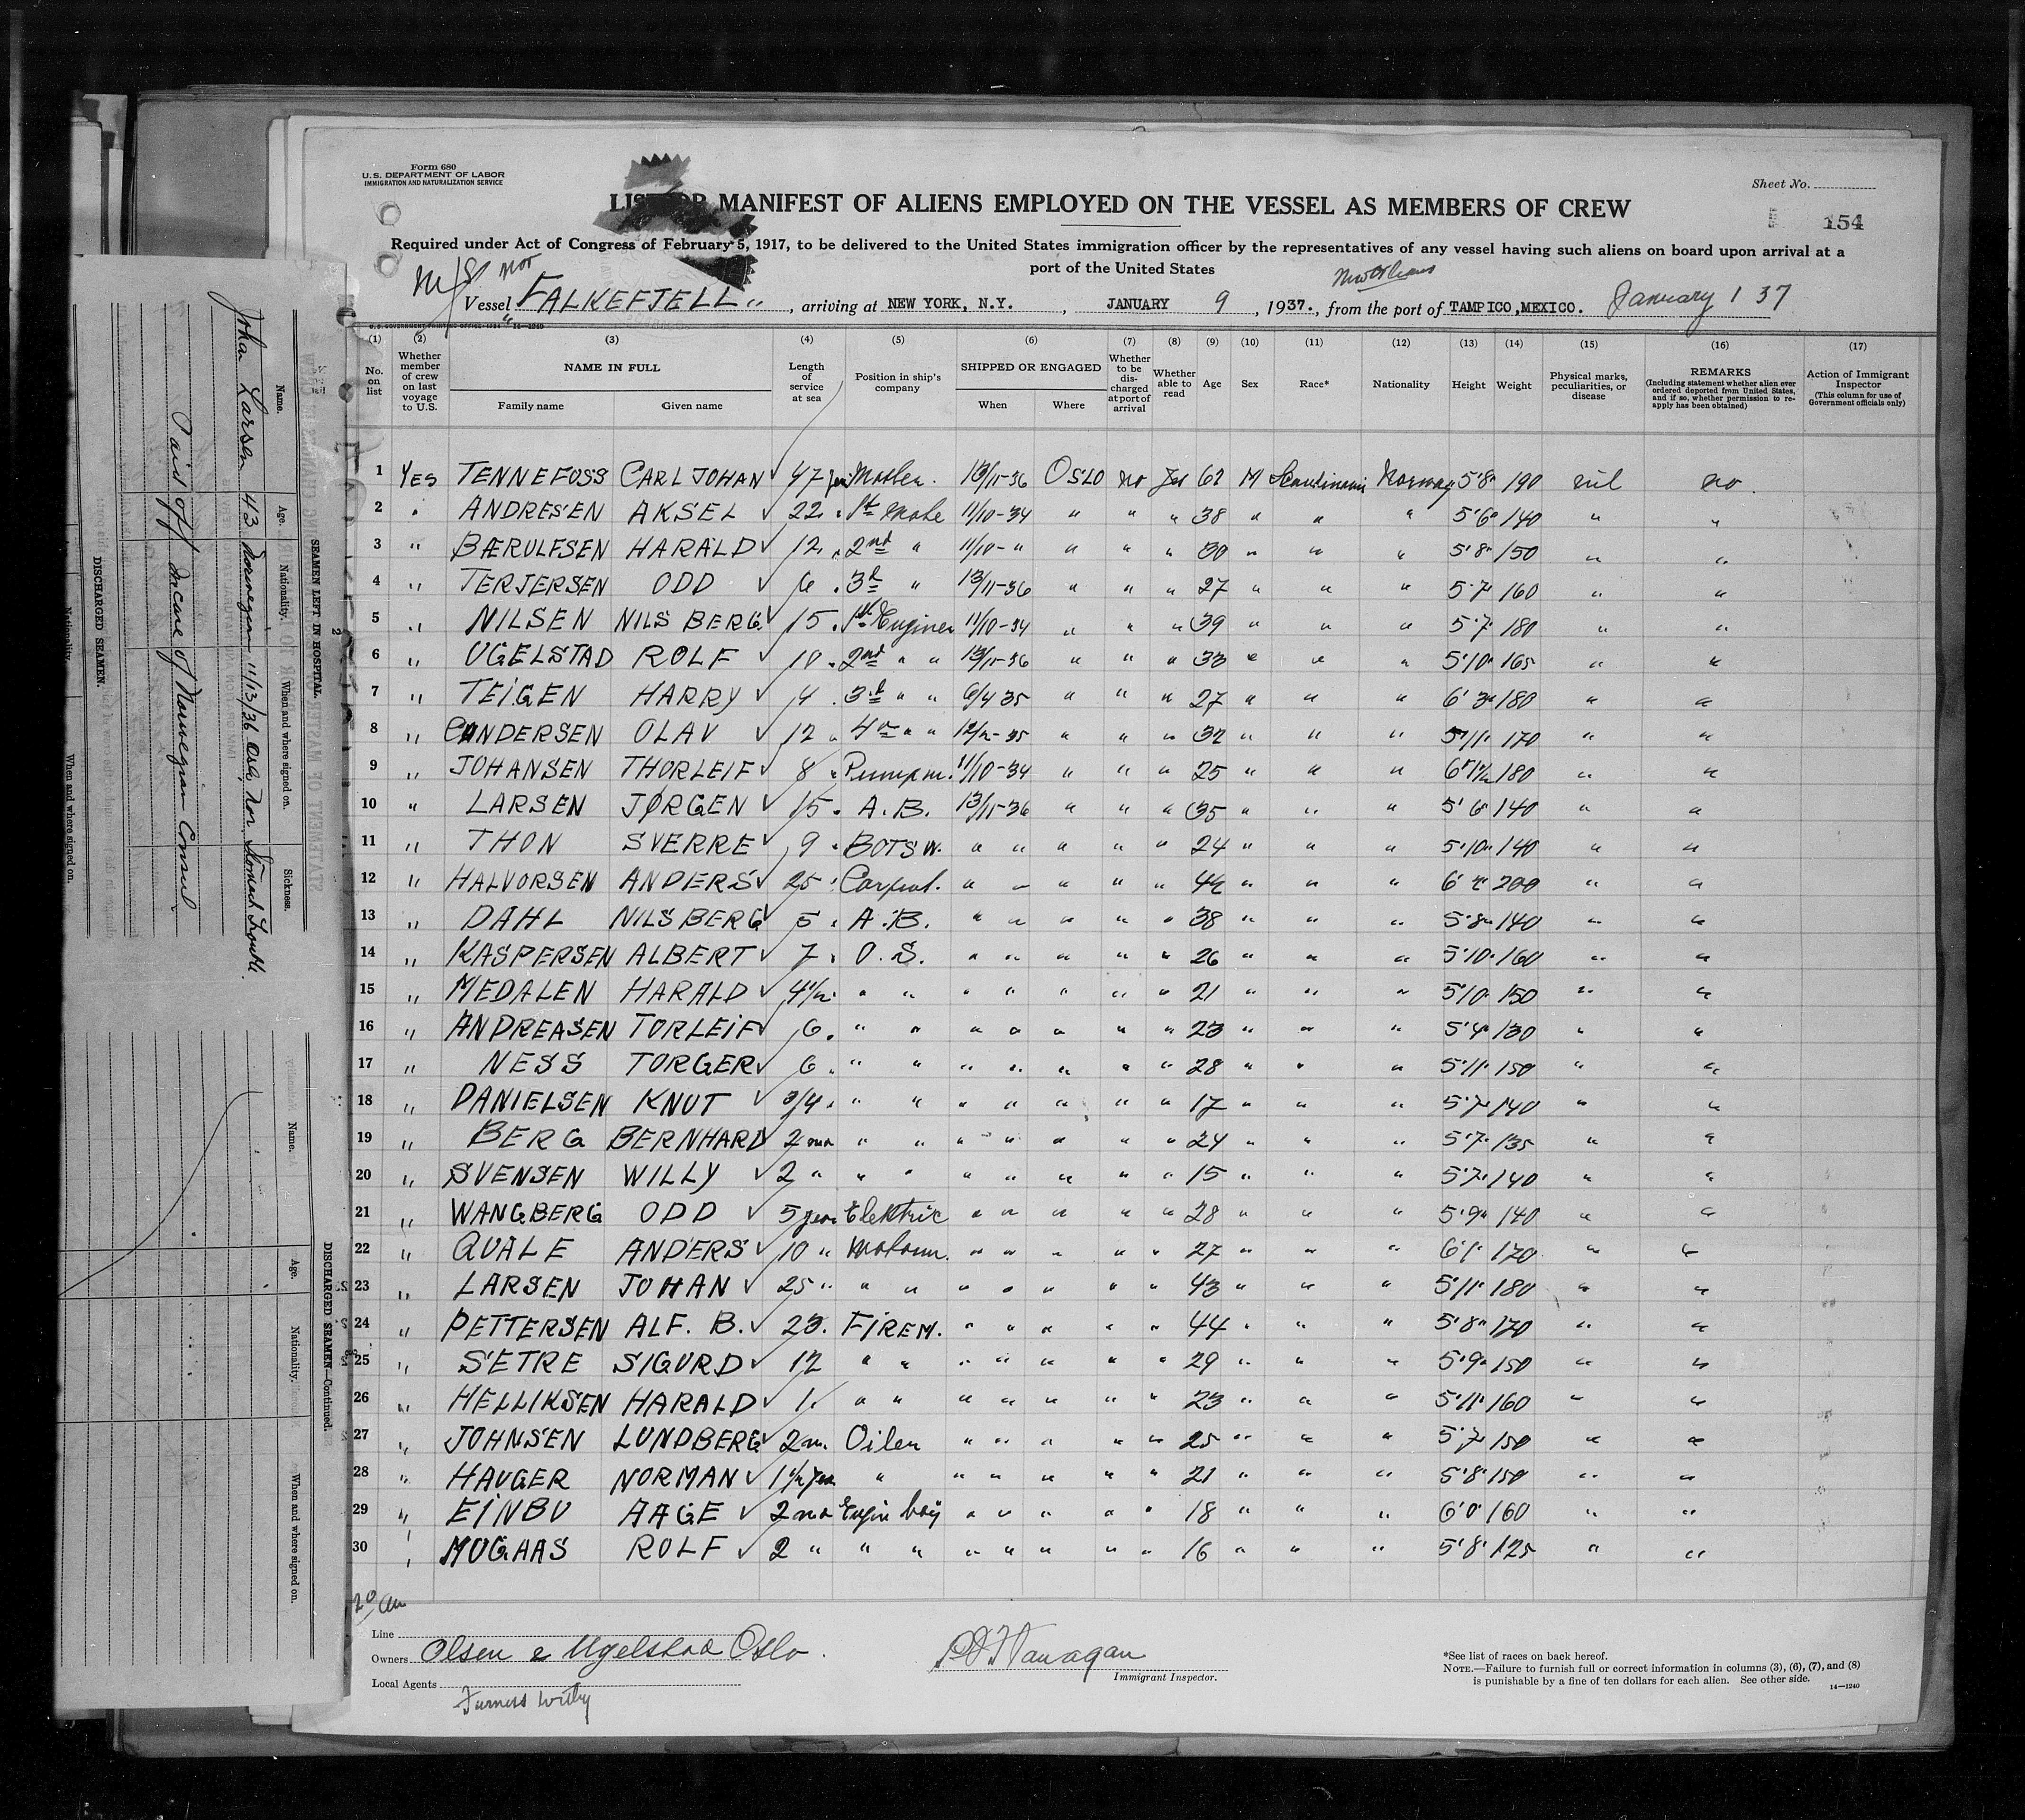 Form 680
U.S. DEPARTMENT OF LABOR
IMMIGRATION AND NATURALIZATION SERVICE
Sheet No.
154
LIST OR MANIFEST OF ALIENS EMPLOYED ON THE VESSEL AS MEMBERS OF CREW
Required under Act of Congress of February 5, 1917, to be delivered to the United States immigration officer by the representatives of any vessel having such aliens on board upon arrival at a
port of the United States
M/S nor New Orleans
Vessel "FALKEFJELL", arriving at NEW YORK, N.Y., JANUARY 9, 1937., from the port of TAMPICO,MEXICO. January 1 37
U.S. GOVERNMENT PRINTING OFFICE 14—1240
(1) (2) (3) (4) (5) (6) (7) (8) (9) (10) (11) (12) (13) (14) (15) (16) (17)
No. on list
Whether member of crew on last voyage to U.S.
NAME IN FULL
Family name Given name
Length of service at sea
Position in ship's company
SHIPPED OR ENGAGED
When Where
Whether to be discharged at port of arrival
Whether able to read
Age
Sex
Race*
Nationality
Height
Weight
Physical marks, peculiarities, or disease
REMARKS
(Including statement whether alien ever ordered deported from United States, and if so, whether permission to reapply has been obtained)
Action of Immigrant Inspector
(This column for use of Government officials only)
1 YES TENNEFOSS CARL JOHAN ✓ 47 years Master. 13/11-36 OSLO no Yes 62 M Scandinavi Norway 5'8" 190 nil no.
2 " ANDRESEN AKSEL ✓ 22 " 1st Mate 11/10-34 " " " 38 " " " 5'6" 140 " "
3 " BÆRULFSEN HARALD ✓ 12 " 2nd " 11/10-" " " " 30 " " " 5'8" 150 " "
4 " TERJERSEN ODD ✓ 6 " 3d " 13/11-36 " " " 27 " " " 5'7" 160 " "
5 " NILSEN NILS BERG. ✓ 15 " 1st Enginer 11/10-34 " " " 39 " " " 5'7" 180 " "
6 " UGELSTAD ROLF ✓ 10 " 2nd " " 13/11-36 " " " 33 " " " 5'10" 165 " "
7 " TEIGEN HARRY ✓ 4 " 3d " " 6/4 35 " " " 27 " " " 6'3" 180 " "
8 " OLAV ✓ 12 " 4 " " 12/2-35 " " " 32 " " " 5'11" 170 " "
9 " JOHANSEN THORLEIF ✓ 8 " Pumpm. 11/10-34 " " " 25 " " " 6'1½ 180 " "
10 " LARSEN JØRGEN ✓ 15 " A.B. 13/11-36 " " " 35 " " " 5'6" 140 " "
11 " THON SVERRE ✓ 9 " BOTSW. " " " " " 24 " " " 5'10" 140 " "
12 " HALVORSEN ANDERS ✓ 25 " Carpent. " " " " " 42 " " " 6' 200 " "
13 " DAHL NILS BERG ✓ 5 " A.B. " " " " " 38 " " " 5'8" 140 " "
14 " KASPERSEN ALBERT ✓ 7 " O.S. " " " " " 26 " " " 5'10" 160 " "
15 " MEDALEN HARALD ✓ 4½ " " " " " " " " 21 " " " 5'10" 150 " "
16 " ANDREASEN TORLEIF ✓ 6 " " " " " " " " 23 " " " 5'4" 130 " "
17 " NESS TORGER ✓ 6 " " " " " " " " 28 " " " 5'11" 150 " "
18 " DANIELSEN KNUT ✓ 3/4 " " " " " " " " 17 " " " 5'7" 140 " "
19 " BERG BERNHARD ✓ 2 mo " " " " " " " 24 " " " 5'7" 135 " "
20 " SVENSEN WILLY ✓ 2 " " " " " " " " 15 " " " 5'7" 140 " "
21 " WANGBERG ODD ✓ 5 years Elektric " " " " " 28 " " " 5'9" 140 " "
22 " QUALE ANDERS ✓ 10 " Motorm. " " " " " 27 " " " 6'1" 170 " "
23 " LARSEN JOHAN ✓ 25 " " " " " " " " 43 " " " 5'11" 180 " "
24 " PETTERSEN ALF. B. ✓ 23. FIREM. " " " " " 44 " " " 5'8" 170 " "
25 " SETRE SIGURD ✓ 12 " " " " " " " 29 " " " 5'9" 150 " "
26 " HELLIKSEN HARALD ✓ 1. " " " " " " " 23 " " " 5'11" 160 " "
27 " JOHNSEN LUNDBERG ✓ 2 m. Oiler " " " " " 25 " " " 5'7" 150 " "
28 " HAUGER NORMAN ✓ 1½ year " " " " " " 21 " " " 5'8" 150 " "
29 " EINBU AAGE ✓ 2 mo Engin boy " " " " " 18 " " " 6'0" 160 " "
30 " MOGAAS ROLF ✓ 2 " " " " " " " " 16 " " " 5'8" 125 " "
Line
Owners Olsen & Ugelstad Oslo.
Local Agents Furness Withy
Flanagan
Immigrant Inspector.
*See list of races on back hereof.
NOTE.—Failure to furnish full or correct information in columns (3), (6), (7), and (8)
is punishable by a fine of ten dollars for each alien. See other side.
14—1240
SEAMEN LEFT IN HOSPITAL
Name. Age. Nationality. When and where signed on. Sickness.
Johan Larsen 43 Norwegian 11/13/36 Oslo, Nor. Stomach trouble.
Paid off in care of Norwegian Consul
DISCHARGED SEAMEN.
Nationality. When and where signed on.
DISCHARGED SEAMEN—Continued.
Name. Age. Nationality. When and where signed on.